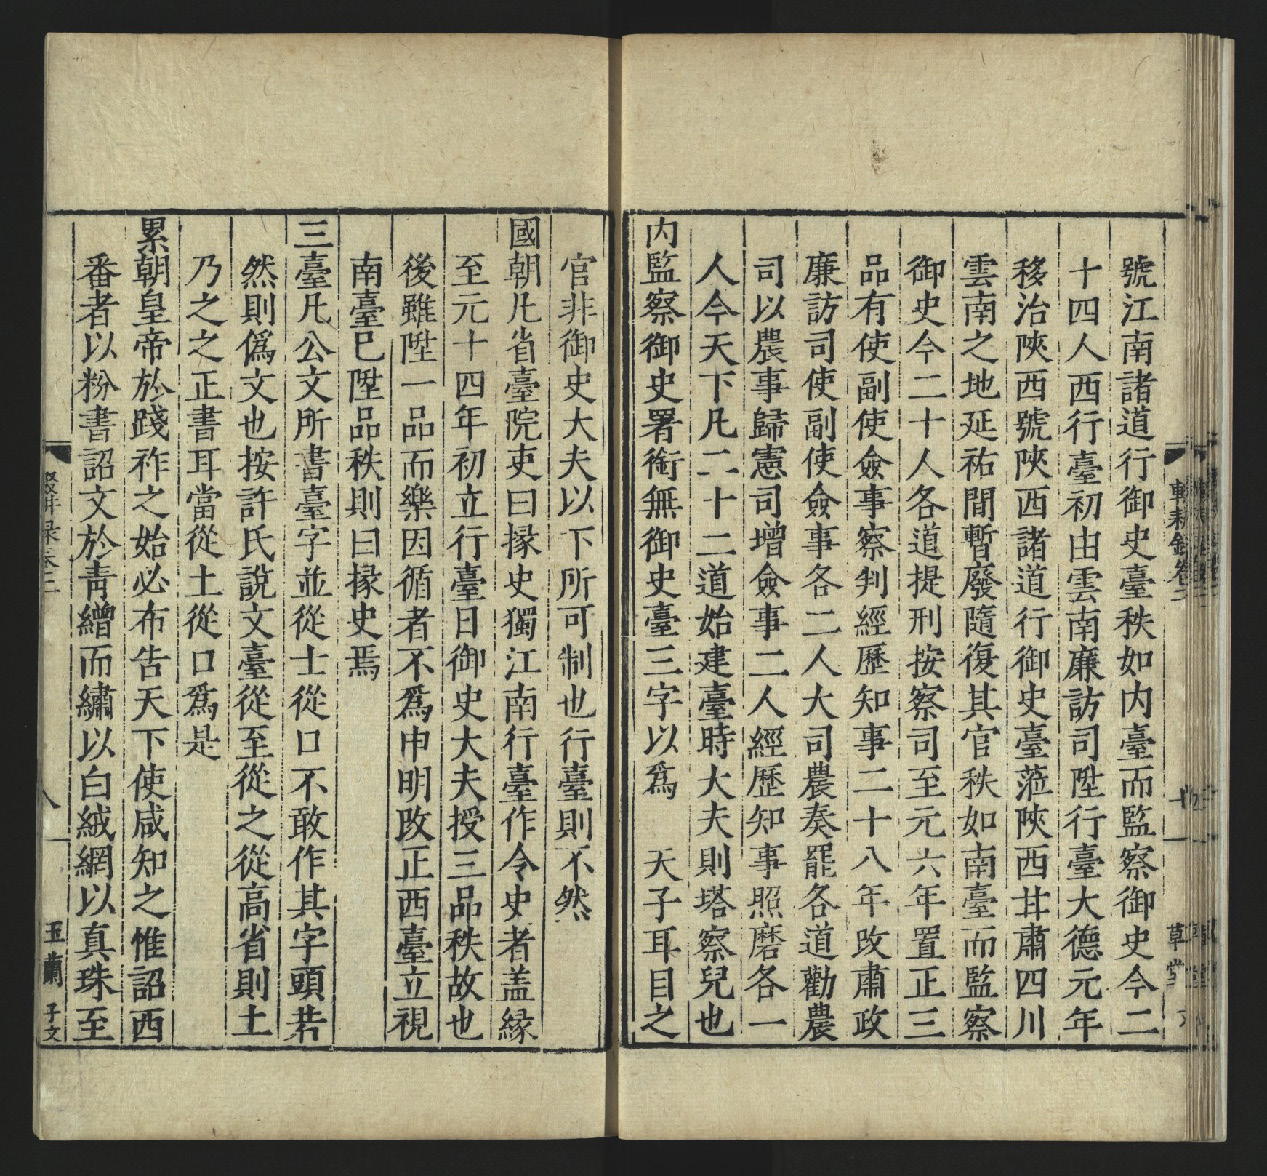 號江南諸道行御史臺秩如内臺而監察御史今二
十四人西行臺初由雲南廉訪司陞行臺大德元年
移治陜西號陜西諸道行御史臺蒞陜西甘肅四川
雲南之地延祐間暫廢隨復其官秩如南臺而監察
御史今二十人各道提刑按察司至元六年置正三
品有使副使僉事察判經歷知事二十八年攺肅政
廉訪司使副使僉事各二人大司農奏罷各道勸農
司以農事歸憲司增僉事二人經歷知事照磨各一
人今天下凡二十二道始建臺時大夫則塔察兒也
内監察御史署銜無御史臺三字以爲　天子耳目之
官非御史大夫以下所可制也行臺則不然
國朝凡省臺院吏曰掾史獨江南行臺作令史者盖緣
至元十四年初立行臺日御史大夫授三品秩故也
後雖陞一品而樂因循者不爲申明攺正西臺立視
南臺已陞品秩則曰掾史焉
三臺凡公文所書臺字並從士從口不敢作其字頭若
然則僞文也按許氏說文臺從至從之從高省則土
乃之之正書耳當從土從口爲是
累朝皇帝於踐祚之始必布告天下使咸知之惟詔西
番者以粉書詔文於靑繒而繡以白絨網以真珠至